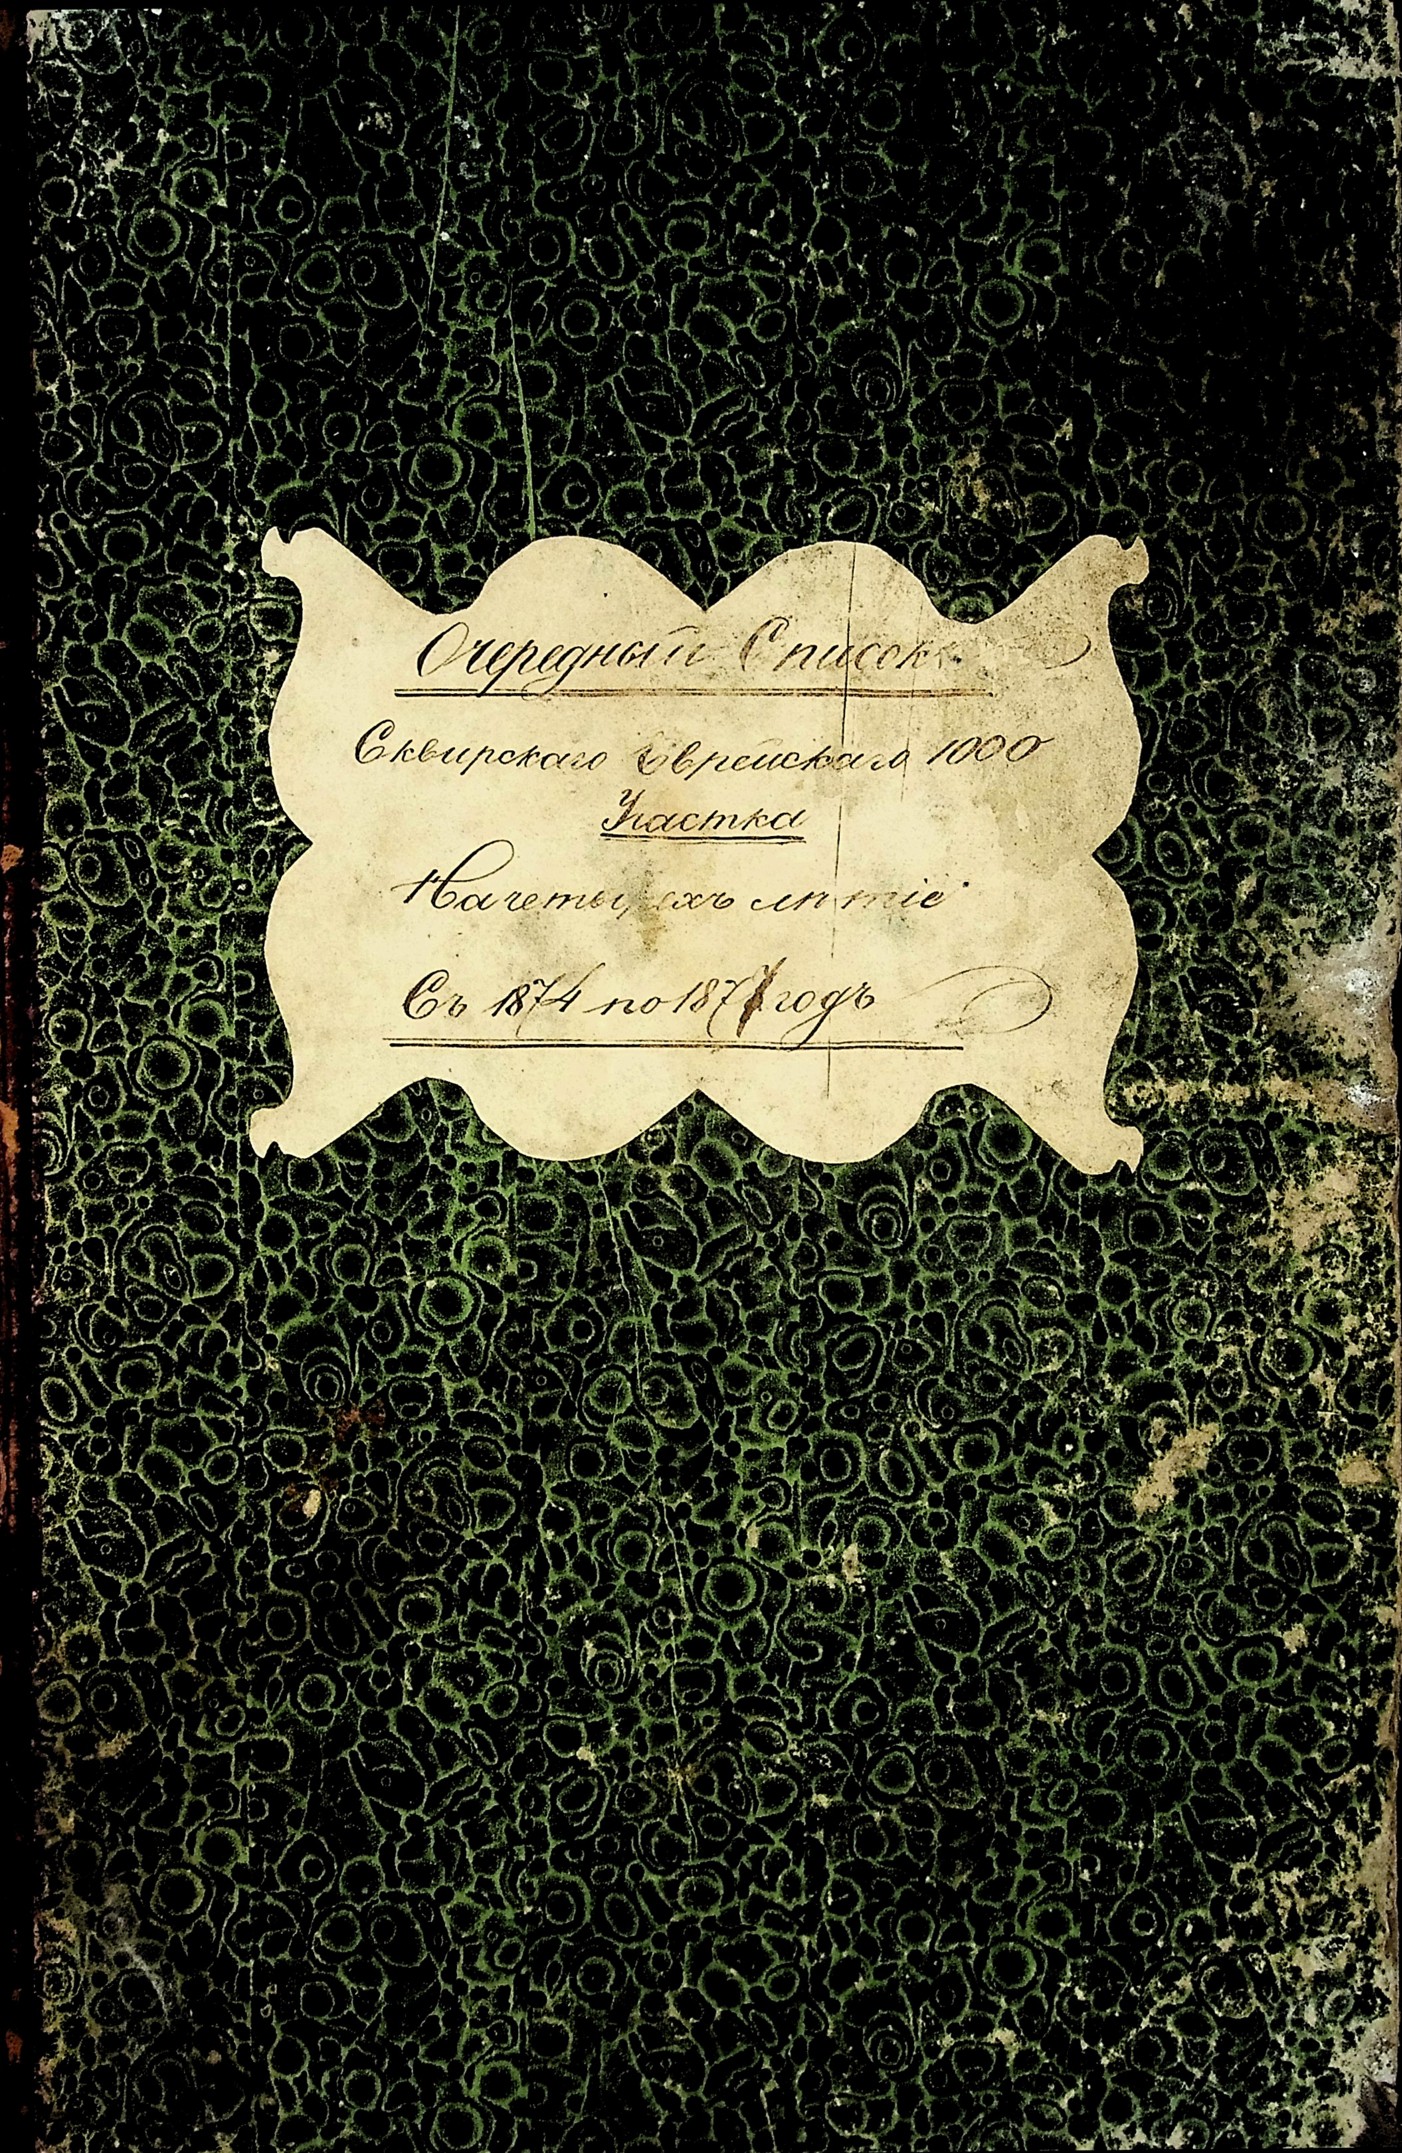 Очередный Списокъ
Сквирскаго Еврейскаго 1000
Участка
Начетырехъ лѣтіе
Съ 1874 по 1877 годъ